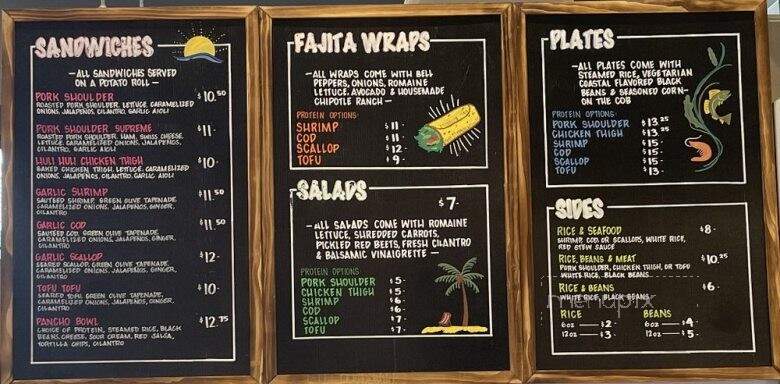 SANDWICHES
—ALL SANDWICHES SERVED
ON A POTATO ROLL—
PORK SHOULDER $10.50
ROASTED PORK SHOULDER, LETTUCE, CARAMELIZED
ONIONS, JALAPEÑOS, CILANTRO, GARLIC AIOLI
PORK SHOULDER SUPREME $11-
ROASTED PORK SHOULDER, HAM, SWISS CHEESE,
LETTUCE, CARAMELIZED ONIONS, JALAPEÑOS,
CILANTRO, GARLIC AIOLI
HULI HULI CHICKEN THIGH $10-
BAKED CHICKEN THIGH, LETTUCE, CARAMELIZED
ONIONS, JALAPEÑOS, CILANTRO, GARLIC AIOLI
GARLIC SHRIMP $11.50
SAUTEED SHRIMP, GREEN OLIVE TAPENADE,
CARAMELIZED ONIONS, JALAPEÑOS, GINGER,
CILANTRO
GARLIC COD $11.50
SAUTEED COD, GREEN OLIVE TAPENADE,
CARAMELIZED ONIONS, JALAPEÑOS, GINGER,
CILANTRO
GARLIC SCALLOP $12-
SEARED SCALLOP, GREEN OLIVE TAPENADE,
CARAMELIZED ONIONS, JALAPEÑOS, GINGER,
CILANTRO
TOFU TOFU $10-
SEARED TOFU, GREEN OLIVE TAPENADE,
CARAMELIZED ONIONS, JALAPEÑOS, GINGER,
CILANTRO
PANCHO BOWL $12.75
CHOICE OF PROTEIN, STEAMED RICE, BLACK
BEANS, CHEESE, SOUR CREAM, RED SALSA,
TORTILLA CHIPS, CILANTRO
FAJITA WRAPS
—ALL WRAPS COME WITH BELL
PEPPERS, ONIONS, ROMAINE
LETTUCE, AVOCADO & HOUSEMADE
CHIPOTLE RANCH—
PROTEIN OPTIONS:
SHRIMP $11-
COD $11-
SCALLOP $12-
TOFU $9-
SALADS $7-
—ALL SALADS COME WITH ROMAINE
LETTUCE, SHREDDED CARROTS,
PICKLED RED BEETS, FRESH CILANTRO
& BALSAMIC VINAIGRETTE—
PROTEIN OPTIONS
PORK SHOULDER $5-
CHICKEN THIGH $5-
SHRIMP $6-
COD $6-
SCALLOP $7-
TOFU $7-
PLATES
—ALL PLATES COME WITH
STEAMED RICE, VEGETARIAN
COASTAL FLAVORED BLACK
BEANS & SEASONED CORN-
ON THE COB
PROTEIN OPTIONS:
PORK SHOULDER $13.25
CHICKEN THIGH $13.25
SHRIMP $15-
COD $15-
SCALLOP $15-
TOFU $13-
SIDES
RICE & SEAFOOD $8-
SHRIMP, COD OR SCALLOPS, WHITE RICE,
RED STEW SAUCE
RICE, BEANS & MEAT $10.25
PORK SHOULDER, CHICKEN THIGH, OR TOFU
WHITE RICE, BLACK BEANS
RICE & BEANS $6-
WHITE RICE, BLACK BEANS
menupix
RICE BEANS
6oz —$2- 6oz —$4-
12oz —$3- 12oz —$5-